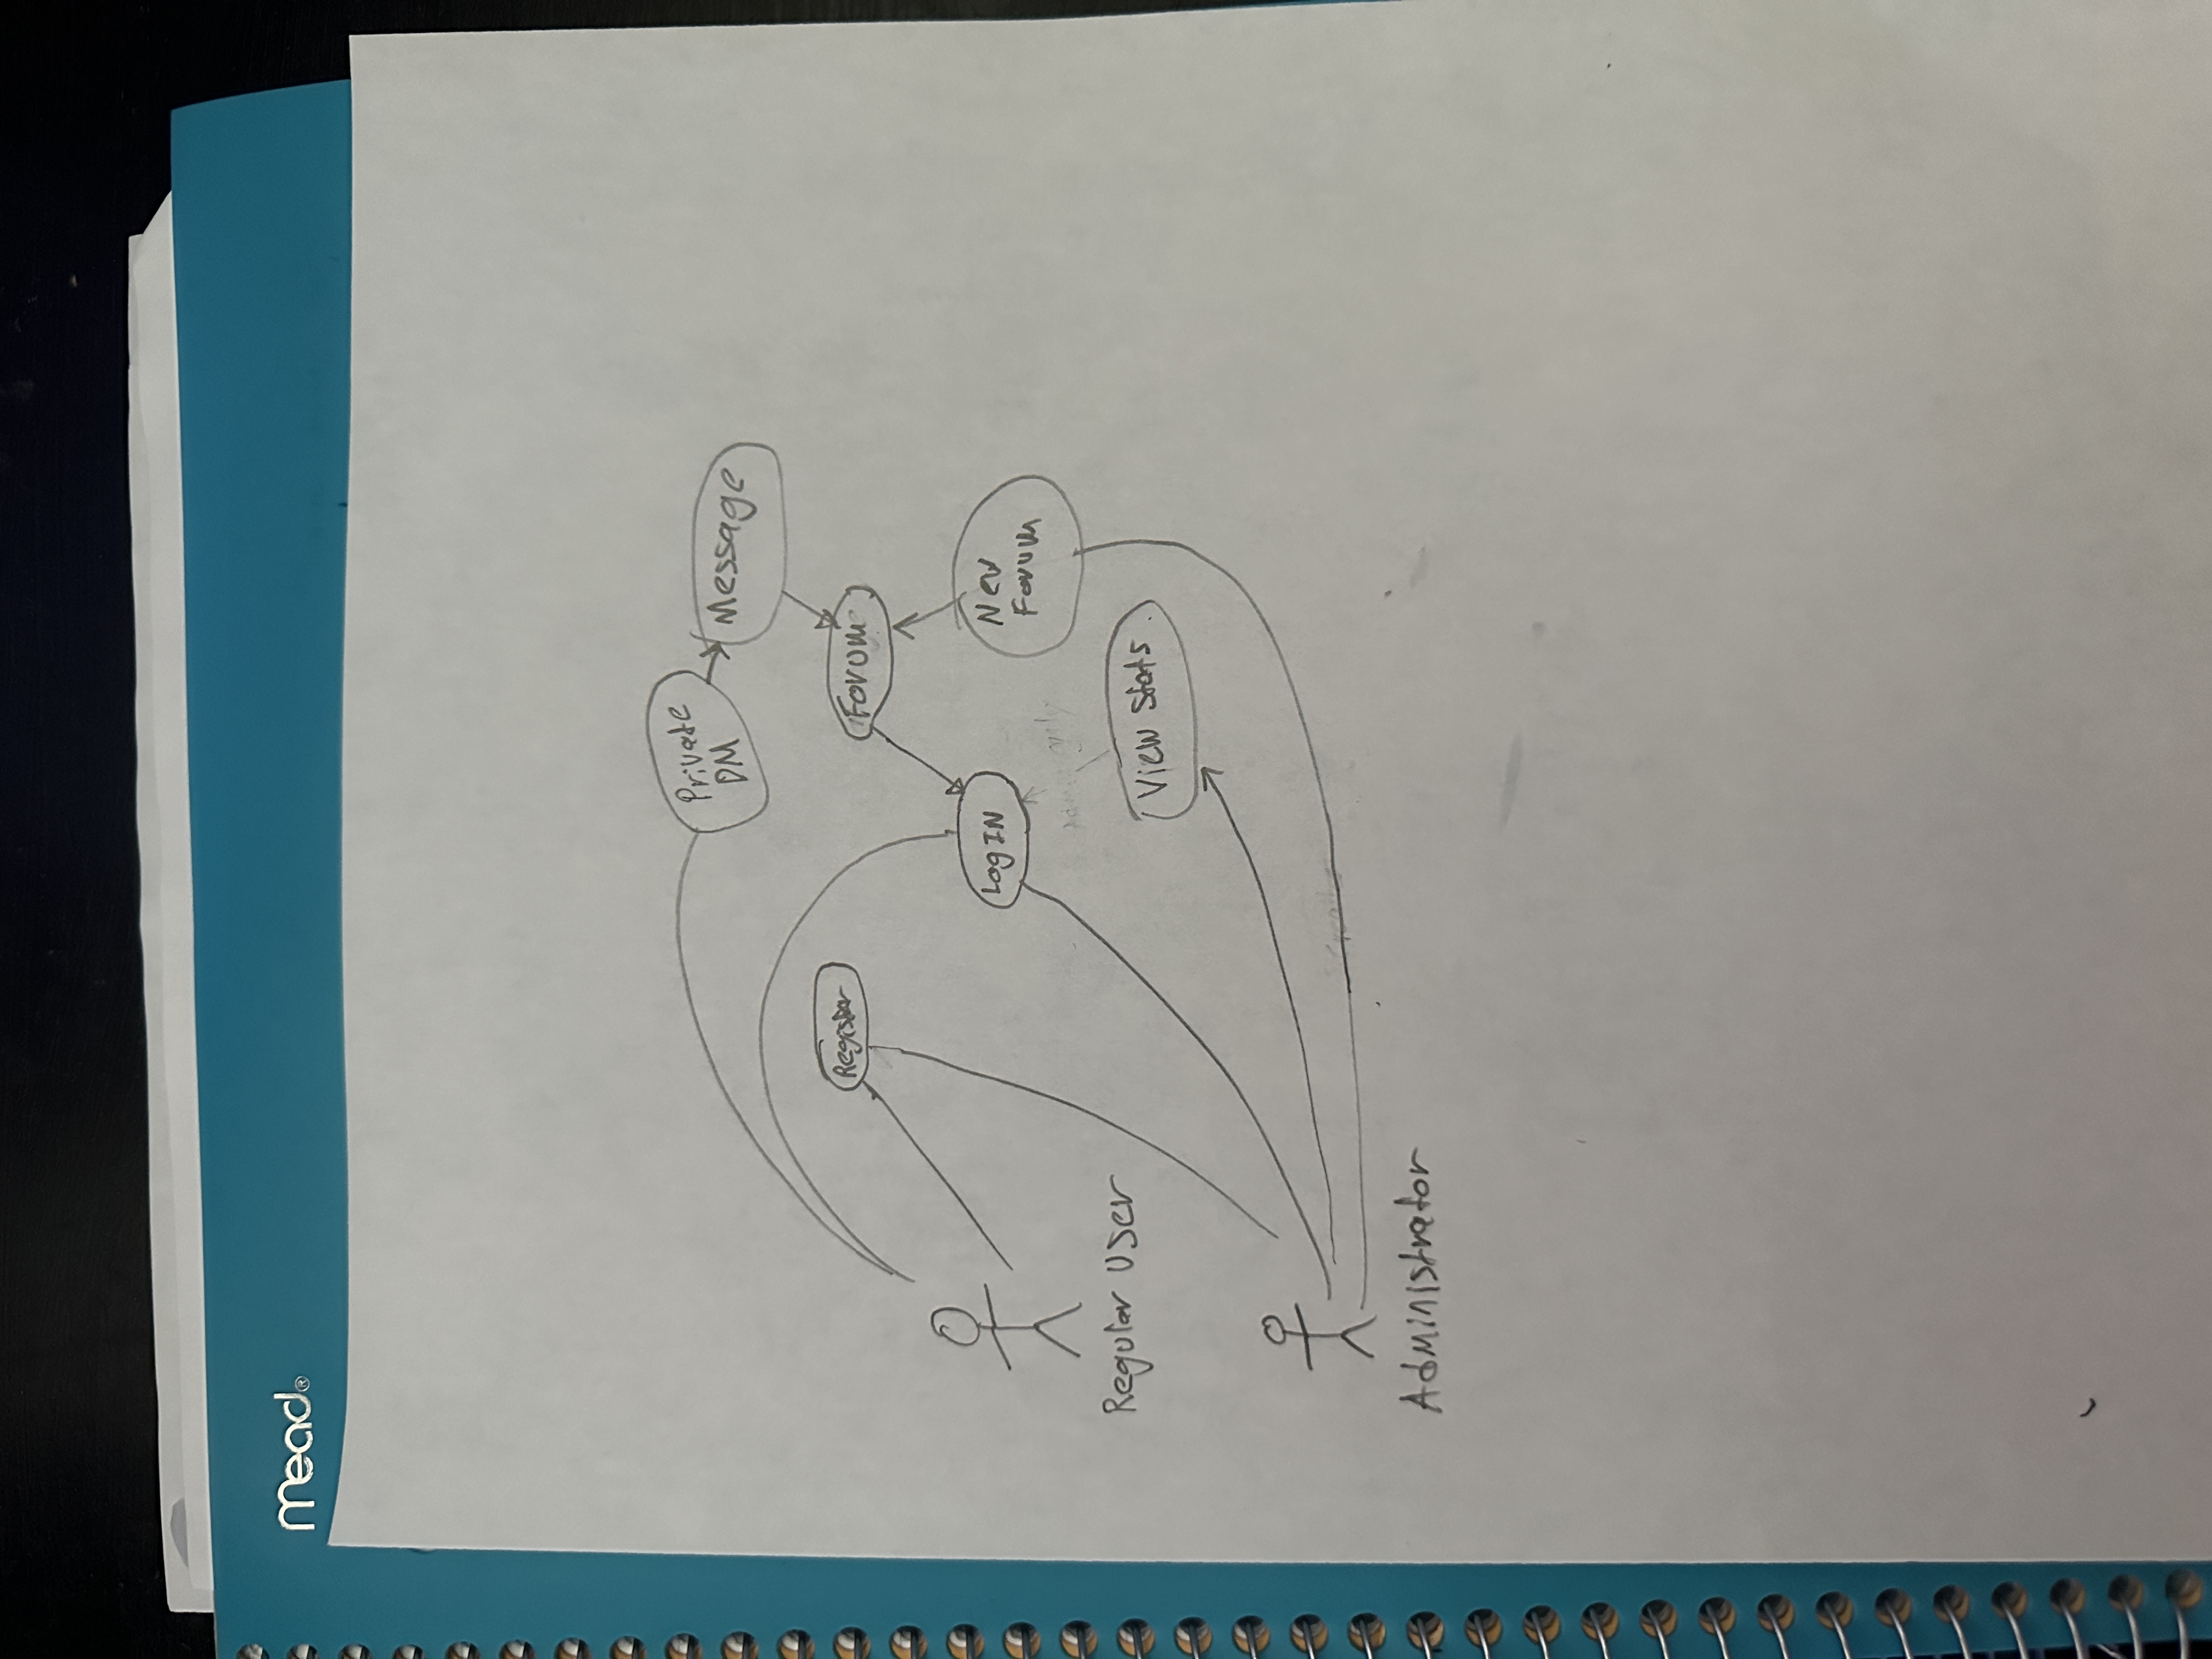 mead®
Private
DM
Message
Register
Forum
LogIN
New
Forum
Admin only
Regular User
View Stats.
Administrator